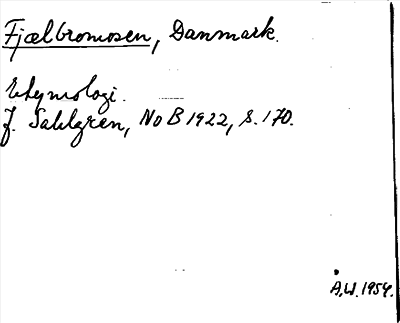 Fjælbromosen, Danmark.
Etymologi.
J. Sahlgren, NoB 1922, s. 170.
Å.W. 1954.